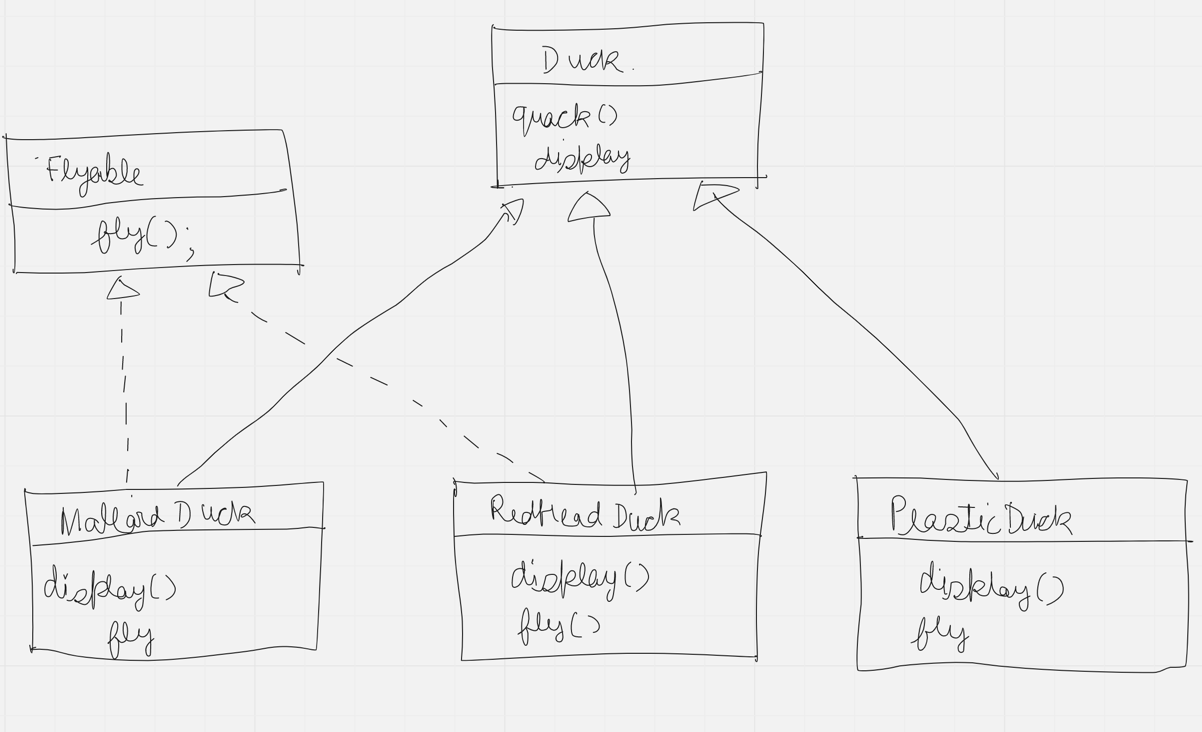 Duck.
quack()
display
Flyable
fly();
Mallard Duck
display()
fly
RedHead Duck
display()
fly()
PlasticDuck
display()
fly